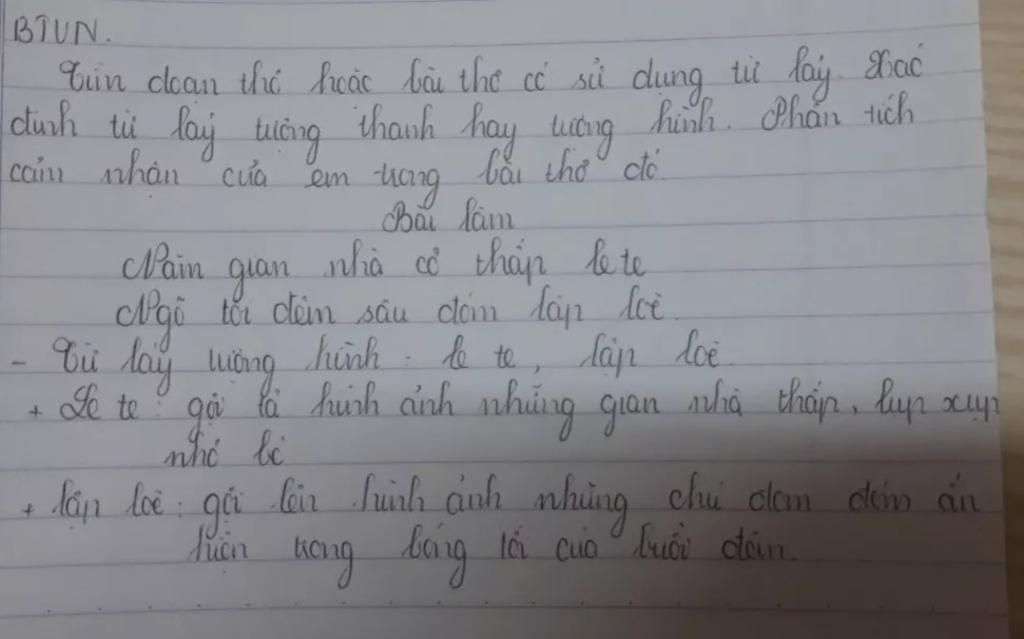 BTVN.
Tìm đoạn thơ hoặc bài thơ có sử dụng từ láy. Xác
định từ láy tượng thanh hay tượng hình. Phân tích
cảm nhận của em trong bài thơ đó.
Bài làm
Năm gian nhà cỏ thấp le te
Ngõ tối đêm sâu đóm lập loè.
- Từ láy tượng hình: le te, lập loè.
+ Le te: gợi tả hình ảnh những gian nhà thấp, lụp xụp
nhỏ bé
+ lập loè: gợi lên hình ảnh những chú đom đóm ẩn
hiện trong bóng tối của buổi đêm.